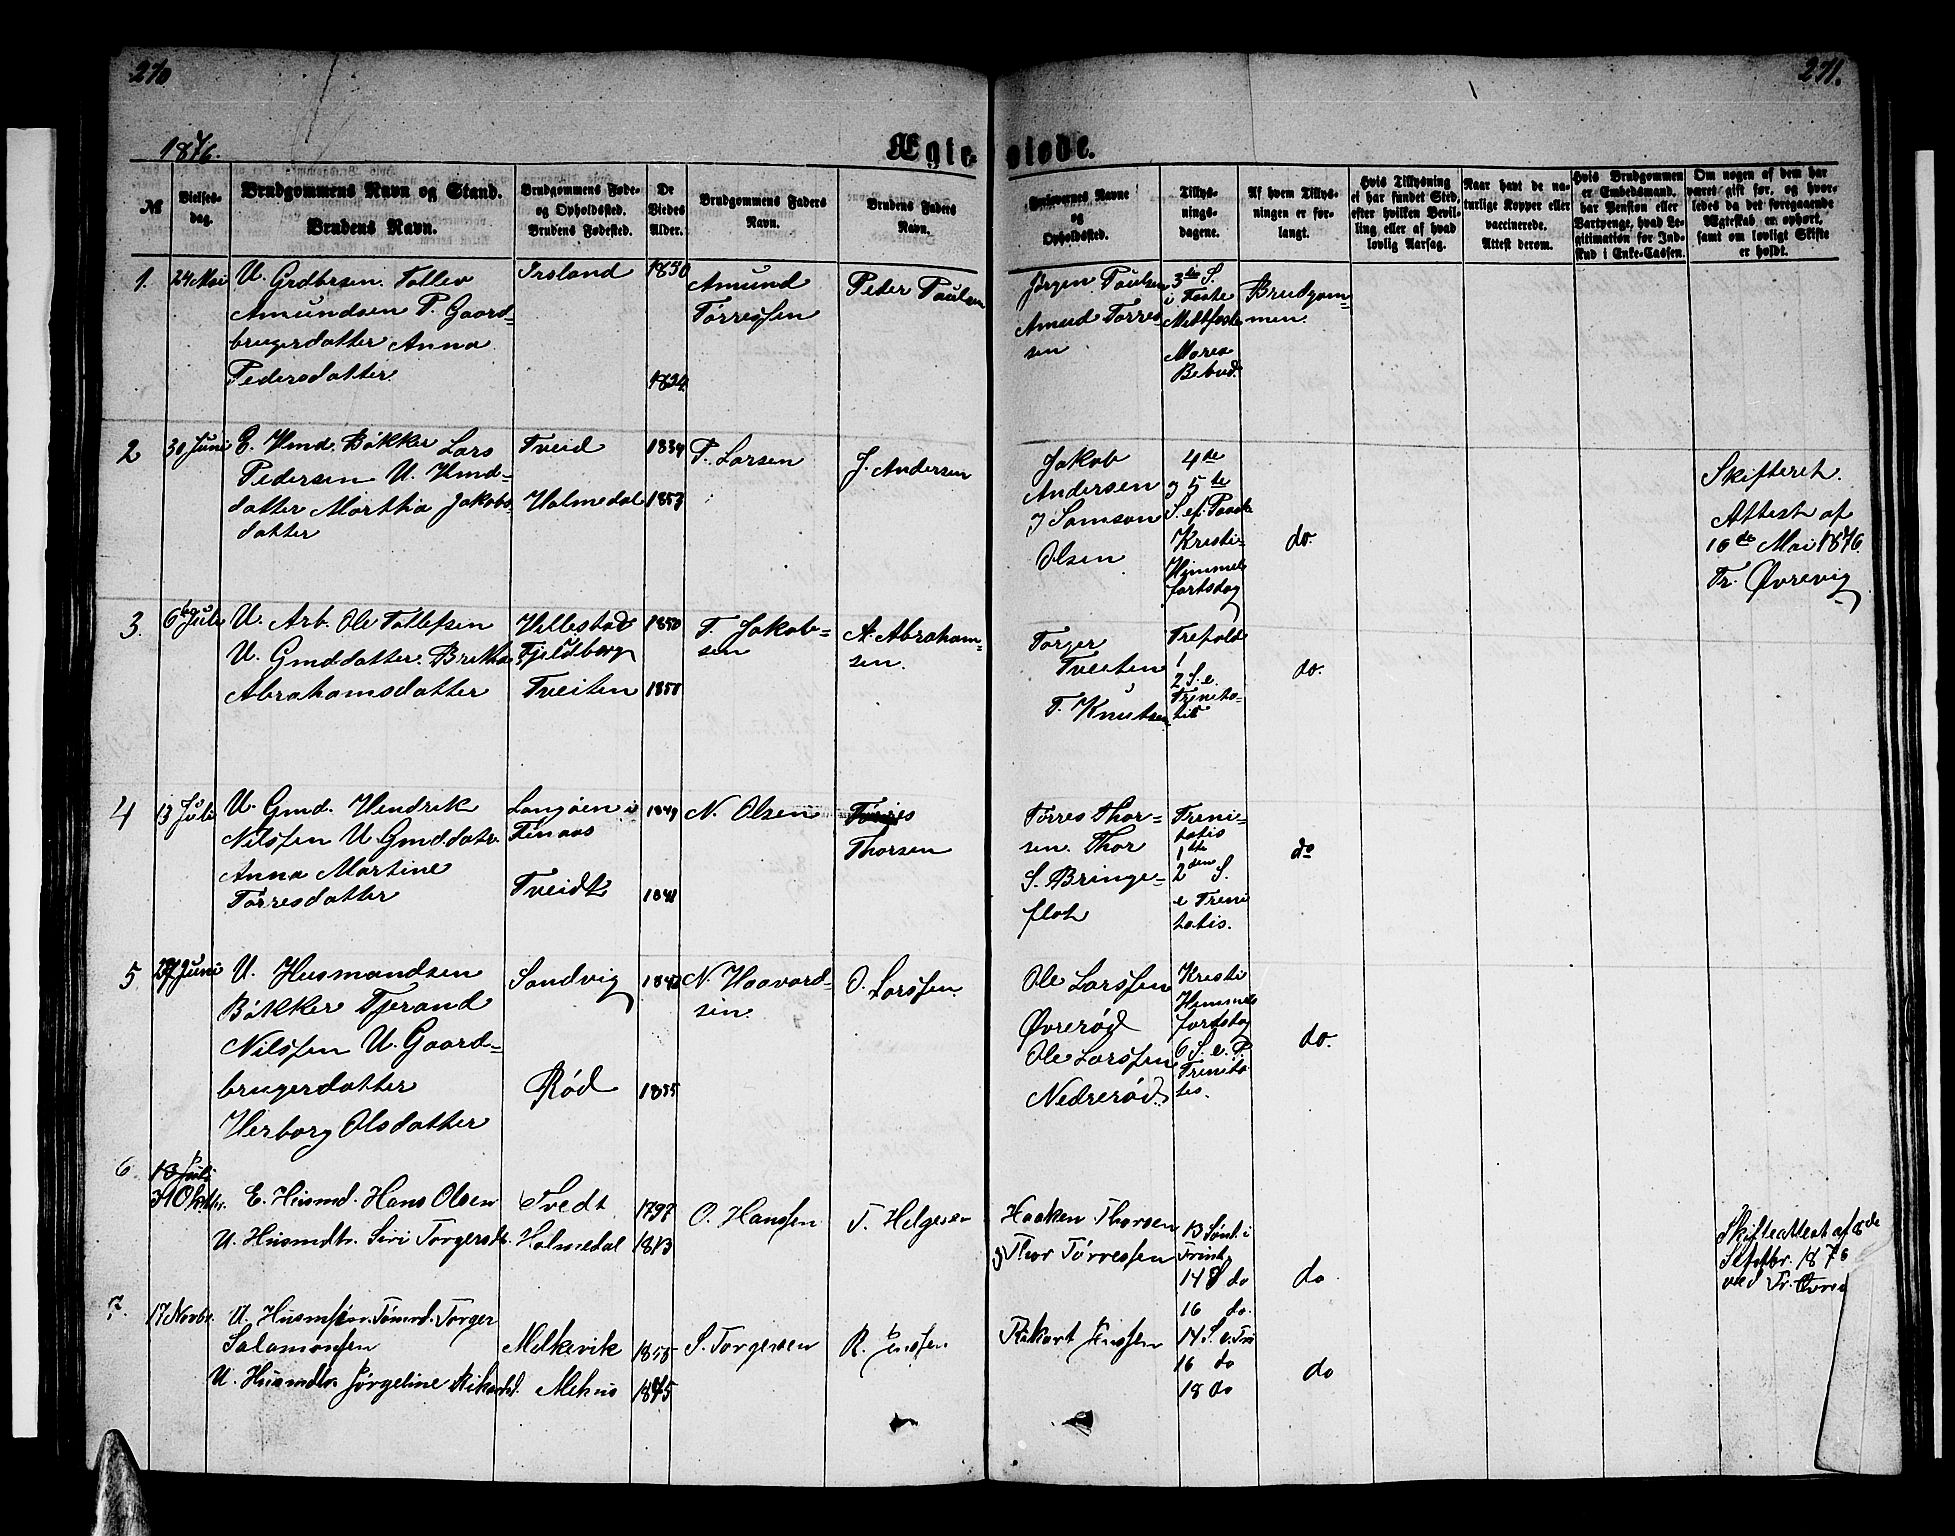 270
271.
1876.
Ægte-
viede.
№
Vielses-
dag.
Brudgommens Navn og Stand.
Brudens Navn.
Brudgommens Føde-
og Opholdssted.
Brudens Fødested.
De
Viedes
Alder.
Brudgommens Faders
Navn.
Brudens Faders
Navn.
Forlovernes Navne
og
Opholdssted.
Tillys-
nings-
dagene.
Af hvem Tillys-
ningen er for-
langt.
Hvis Tillysning
ei har fundet Sted,
efter hvilken Bevil-
ling eller af hvad
lovlig Aarsag.
Naar havt de na-
turlige Kopper eller
vaccinerede.
Attest derom.
Hvis Brudgommen
er Embedsmand,
har Pension eller
Vartpenge, hvad Le-
gitimation for Ind-
skud i Enke-Cassen.
Om nogen af dem har
været gift før, og hvor-
ledes da det foregaaende
Ægteskab er ophørt,
samt om lovligt Skifte
er holdt.
1.
24 Mai
U. Grdbrsen. Tollev
Amundsen P. Gaard-
brugerdatter Anna
Pedersdatter
Irsland
1850
1824
Amund
Tørressen
Peter Paulsen
Jørgen Paulsen
Amud Torres-
sen
3de S.
i Faste
Midtfaste
Mariæ
Bebud.
Brudgom-
men.
2
30 Juni
E. Hmd. Bøkker Lars
Pedersen U. Hmd-
datter Martha Jakobs-
datter
Tveid
Holmedal
1834
1853
P. Larsen
J. Andersen
Jakob
Andersen
J Samson
Olsen
4de
og 5te
S. ef. Paaske
Kristi-
Himmel
fartsdag
do.
Skifteret.
Attest af
16de Mai 1876
Fr. Øvrevig
3.
6 Juli
U. Arb. Ole Tollefsen
U. Gmddatter. Britha
Abrahamsdatter
Hillestad
Fjeldberg
Tveiten
1850
1851
T. Jakob-
sen
A. Abraham-
sen.
Torger
Tveiten
T. Knutsen
Trefold
1
2 S. e.
Trinita-
tis
do.
4
13 Juli
U. Gmd. Hendrik
Nilssen U. Gmd.datr.
Anna Martine
Tørresdatter
Langøen i
Finaas
Tveidt
1849
1841
N. Olsen
Tørres
Thorsen
Tørres Thor-
sen. Thor
S. Bringe-
flot
Treni-
tatis
1ste
2den S.
e Treni
tatis.
do
5
27 Juni
U. Husmandsen
Bøkker Tjerand
Nilssen U. Gaard-
brugerdatter
Herborg Olsdatter
Sandvig
Rød
1842
1855
N. Haavard-
sen.
O. Larssen.
Ole Larssen
Øvrerød
Ole Larssen
Nedrerød.
Kristi
Himmel
fartsdag
6 S. e. P.
Trinita
tis.
do.
6
13 Juli
31 Oktbr.
E. Husmd. Hans Olsen
U. Husmdtr. Siri Torgersdt.
Tvedt
Holmedal
1797
1813
O. Hanssen
T. Helgesen
Haaken Thorsen
og Thor Tørressen
13 Sønt. i
Trint.
14 S do
16 do.
do
Skifteattest af 8de
Septbr. 1876
ved Fr. Øvre
7.
17 Novbr.
U. Husmsøn Tømrd. Torger
Salamonsen
U. Husmdtr. Jørgeline Rikardsd.
Melkevik
Mehus
1855
1845
S. Torgersen
R. Jenssen
Rikart Jenssen
14 S. e. Tri
16 do
18 do
do